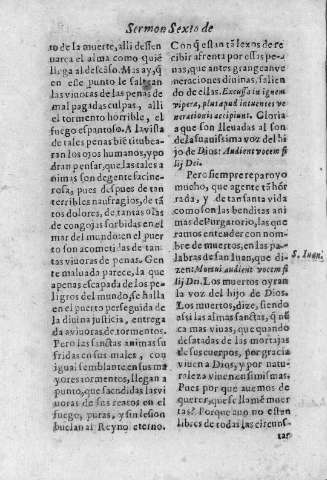 Sermon Sexto de
to de la muerte, alli desen
narca el alma como quiē
llega al descāso. Mas ay, q̄
en este punto le saltean
las viuoras de las penas de
mal pagadas culpas, alli
el tormento horrible, el
fuego espantoso. A la vista
de tales penas biē titubea-
ran los ojos humanos, y po
dran pensar, que las tales a
nimas son de gente facine-
rosa, pues despues de tan
terribles naufragios, de tā
tos dolores, de tantas olas
de congojas sorbidas en el
mar del mundo en el puer
to son acometidas de tan-
tas viuoras de penas. Gen
te maluada parece, la que
apenas escapada de los pe-
ligros del mundo, se halla
en el puerto perseguida de
la diuina justicia, entrega
da a viuoras de tormentos.
Pero las sanctas animas su
fridas en sus males, con
igual semblante en sus ma
yores tormentos, llegan a
punto, que sacudidas las vi
uoras de sus reatos en el
fuego, puras, y sin lesion
buelan al Reyno eterno.
Con q̄ estan tā lexos de re
cibir afrenta por estas pe-
nas, que antes grangean ve
neraciones diuinas, salien
do de ellas. Excussa in ignem
vipera, plus apud intuentes ve
nerationis accipiunt. Gloria
a que son lleuadas al son
de la suauissima voz del hi
jo de Dios: Audient vocem fi
lij Dei.
Pero siempre reparo yo
mucho, que agente tā hō
rada, y de tan santa vida
como son las benditas ani
mas de Purgatorio, las que
ramos entender con nom
bre de muertos, en las pa-
labras de san Iuan, que di-
zen: Mortui audient vocem fi
lij Dei. Los muertos oyran
la voz del hijo de Dios.
Los muertos, dize, siendo
assi las almas sanctas, q̄ nū
ca mas viuas, que quando
desatadas de las mortajas
de sus cuerpos, por gracia
viuen a Dios, y por natu-
raleza viuen en si mismas.
Pues por que auemos de
querer, que se llamē muer
tas? Porque aun no estan
libres de todas las circuns-
tan
S. Iuan.